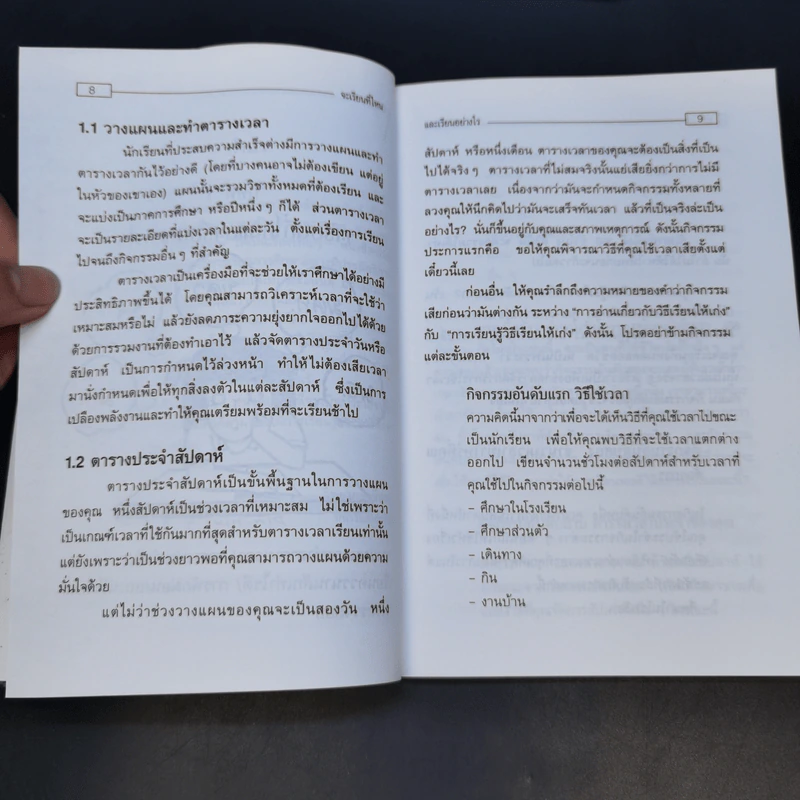 8
จะเรียนที่ไหน
1.1 วางแผนและทำตารางเวลา
นักเรียนที่ประสบความสำเร็จต่างมีการวางแผนและทำ
ตารางเวลากันไว้อย่างดี (โดยที่บางคนอาจไม่ต้องเขียน แต่อยู่
ในหัวของเขาเอง) แผนนั้นจะรวมวิชาทั้งหมดที่ต้องเรียน และ
จะแบ่งเป็นภาคการศึกษา หรือปีหนึ่ง ๆ ก็ได้ ส่วนตารางเวลา
จะเป็นรายละเอียดที่แบ่งเวลาในแต่ละวัน ตั้งแต่เรื่องการเรียน
ไปจนถึงกิจกรรมอื่น ๆ ที่สำคัญ
ตารางเวลาเป็นเครื่องมือที่จะช่วยให้เราศึกษาได้อย่างมี
ประสิทธิภาพขึ้นได้ โดยคุณสามารถวิเคราะห์เวลาที่จะใช้ว่า
เหมาะสมหรือไม่ แล้วยังลดภาระความยุ่งยากใจออกไปได้ด้วย
ด้วยการรวมงานที่ต้องทำเอาไว้ แล้วจัดตารางประจำวันหรือ
สัปดาห์ เป็นการกำหนดไว้ล่วงหน้า ทำให้ไม่ต้องเสียเวลา
มานั่งกำหนดเพื่อให้ทุกสิ่งลงตัวในแต่ละสัปดาห์ ซึ่งเป็นการ
เปลืองพลังงานและทำให้คุณเตรียมพร้อมที่จะเรียนช้าไป
1.2 ตารางประจำสัปดาห์
ตารางประจำสัปดาห์เป็นขั้นพื้นฐานในการวางแผน
ของคุณ หนึ่งสัปดาห์เป็นช่วงเวลาที่เหมาะสม ไม่ใช่เพราะว่า
เป็นเกณฑ์เวลาที่ใช้กันมากที่สุดสำหรับตารางเวลาเรียนเท่านั้น
แต่ยังเพราะว่าเป็นช่วงยาวพอที่คุณสามารถวางแผนด้วยความ
มั่นใจด้วย
แต่ไม่ว่าช่วงวางแผนของคุณจะเป็นสองวัน หนึ่ง
และเรียนอย่างไร
9
สัปดาห์ หรือหนึ่งเดือน ตารางเวลาของคุณจะต้องเป็นสิ่งที่เป็น
ไปได้จริง ๆ ตารางเวลาที่ไม่สมจริงนั้นแย่เสียยิ่งกว่าการไม่มี
ตารางเวลาเลย เนื่องจากว่ามันจะกำหนดกิจกรรมทั้งหลายที่
ลวงคุณให้นึกคิดไปว่ามันจะเสร็จทันเวลา แล้วที่เป็นจริงล่ะเป็น
อย่างไร? นั่นก็ขึ้นอยู่กับคุณและสภาพเหตุการณ์ ดังนั้นกิจกรรม
ประการแรกคือ ขอให้คุณพิจารณาวิธีที่คุณใช้เวลาเสียตั้งแต่
เดี๋ยวนี้เลย
ก่อนอื่น ให้คุณรำลึกถึงความหมายของคำว่ากิจกรรม
เสียก่อนว่ามันต่างกัน ระหว่าง “การอ่านเกี่ยวกับวิธีเรียนให้เก่ง”
กับ “การเรียนรู้วิธีเรียนให้เก่ง” ดังนั้น โปรดอย่าข้ามกิจกรรม
แต่ละขั้นตอน
กิจกรรมอันดับแรก วิธีใช้เวลา
ความคิดนี้มาจากว่าเพื่อจะได้เห็นวิธีที่คุณใช้เวลาไปขณะ
เป็นนักเรียน เพื่อให้คุณพบวิธีที่จะใช้เวลาแตกต่าง
ออกไป เขียนจำนวนชั่วโมงต่อสัปดาห์สำหรับเวลาที่
คุณใช้ไปในกิจกรรมต่อไปนี้
– ศึกษาในโรงเรียน
– ศึกษาส่วนตัว
– เดินทาง
– กิน
– งานบ้าน